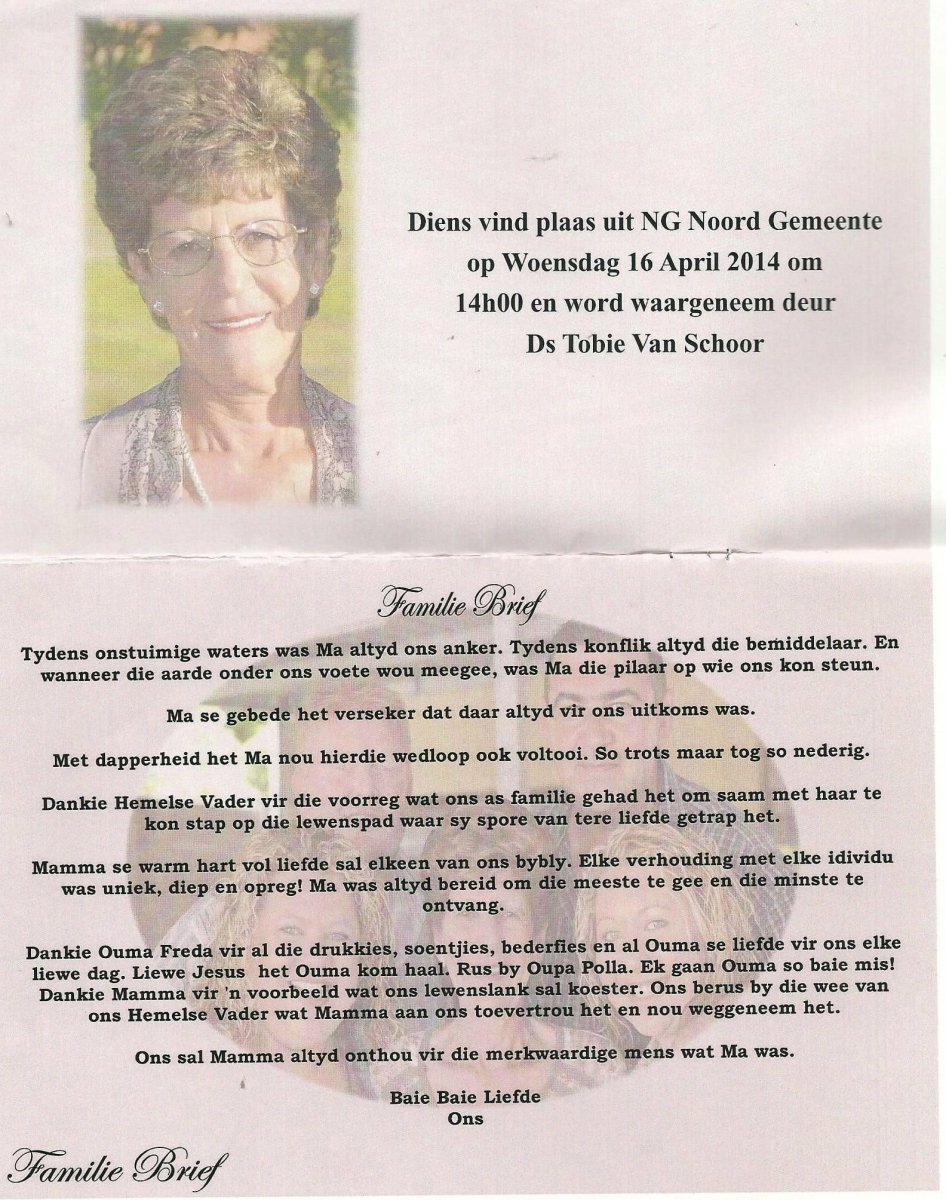 Diens vind plaas uit NG Noord Gemeente
op Woensdag 16 April 2014 om
14h00 en word waargeneem deur
Ds Tobie Van Schoor
Familie Brief
Tydens onstuimige waters was Ma altyd ons anker. Tydens konflik altyd die bemiddelaar. En
wanneer die aarde onder ons voete wou meegee, was Ma die pilaar op wie ons kon steun.
Ma se gebede het verseker dat daar altyd vir ons uitkoms was.
Met dapperheid het Ma nou hierdie wedloop ook voltooi. So trots maar tog so nederig.
Dankie Hemelse Vader vir die voorreg wat ons as familie gehad het om saam met haar te
kon stap op die lewenspad waar sy spore van tere liefde getrap het.
Mamma se warm hart vol liefde sal elkeen van ons bybly. Elke verhouding met elke idividu
was uniek, diep en opreg! Ma was altyd bereid om die meeste te gee en die minste te
ontvang.
Dankie Ouma Freda vir al die drukkies, soentjies, bederfies en al Ouma se liefde vir ons elke
liewe dag. Liewe Jesus het Ouma kom haal. Rus by Oupa Polla. Ek gaan Ouma so baie mis!
Dankie Mamma vir 'n voorbeeld wat ons lewenslank sal koester. Ons berus by die wee van
ons Hemelse Vader wat Mamma aan ons toevertrou het en nou weggeneem het.
Ons sal Mamma altyd onthou vir die merkwaardige mens wat Ma was.
Baie Baie Liefde
Ons
Familie Brief